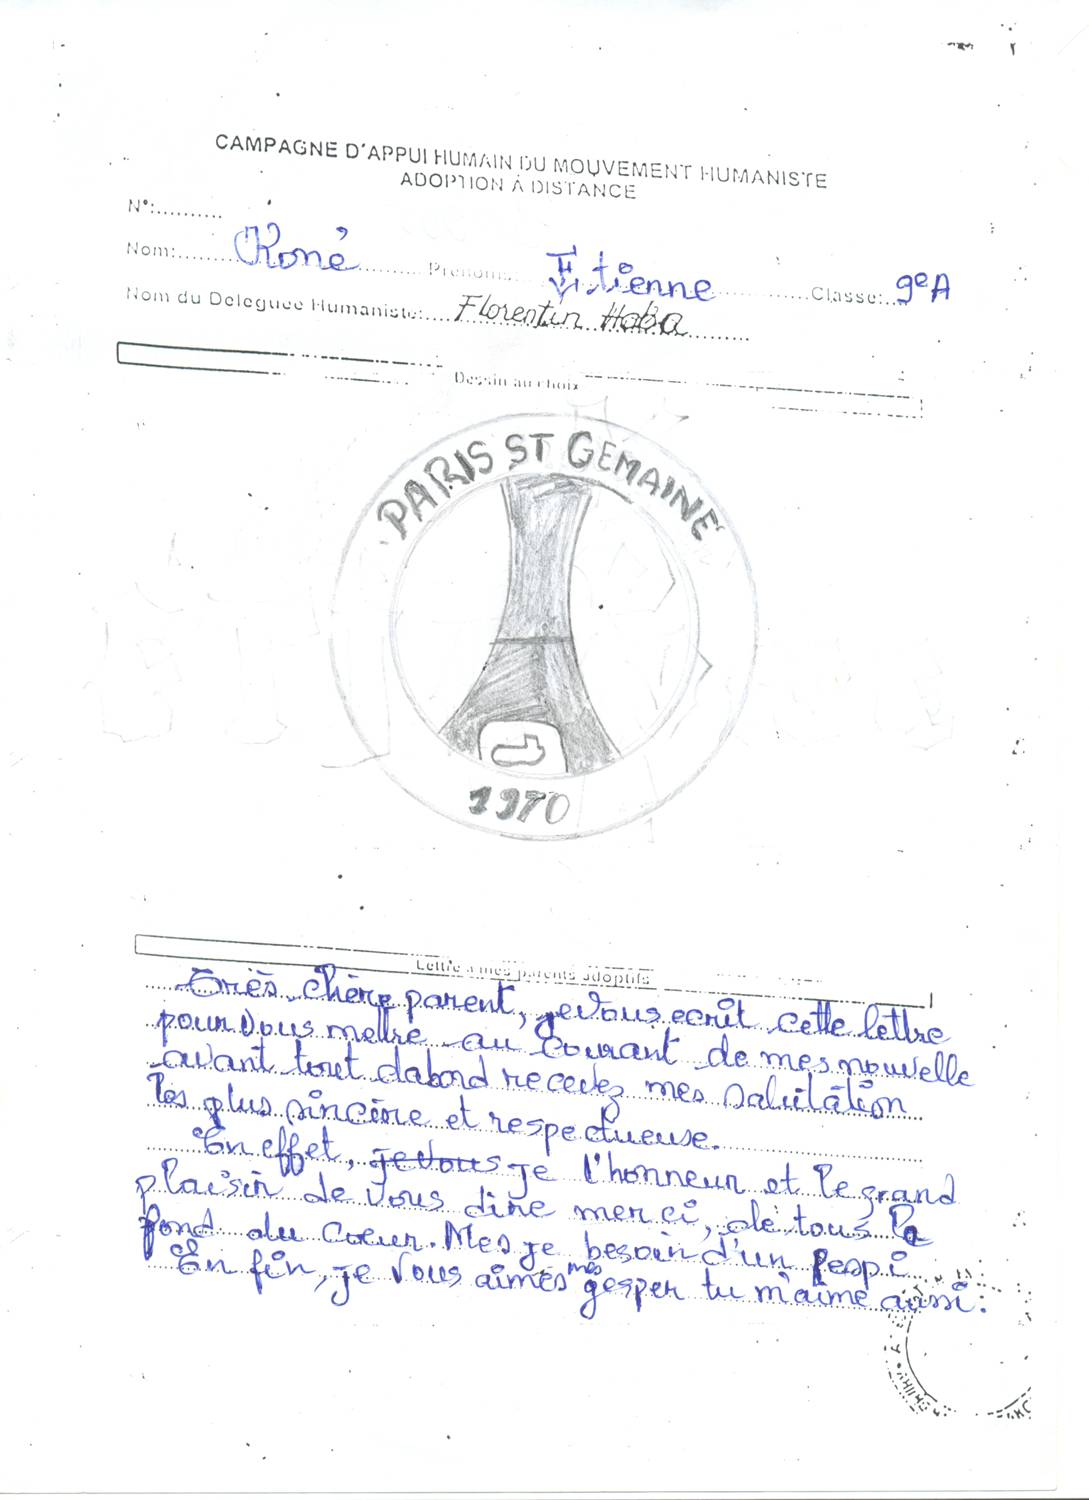 CAMPAGNE D'APPUI HUMAIN DU MOUVEMENT HUMANISTE
ADOPTION À DISTANCE
N°:..........
Nom:....... Koné .......... Prénoms: Etienne ............Classe:... 9e A
Nom du Deleguée Humaniste:..... Florentin Haba ..........
Dessin au choix
PARIS ST GEMAINE
1970
Lettre a mes parents adoptifs
Très chère parent, je vous ecrit cette lettre
pour vous mettre au courant de mes nouvelle
avant tout dabord recevez mes salutation
les plus sincère et respectueuse.
En effet, je vous je l'honneur et le grand
plaisir de vous dire merci, de tous le
fond du coeur. Mes je besoin d'un pespi
En fin, je vous aimes mes gesper tu m'aime aussi.